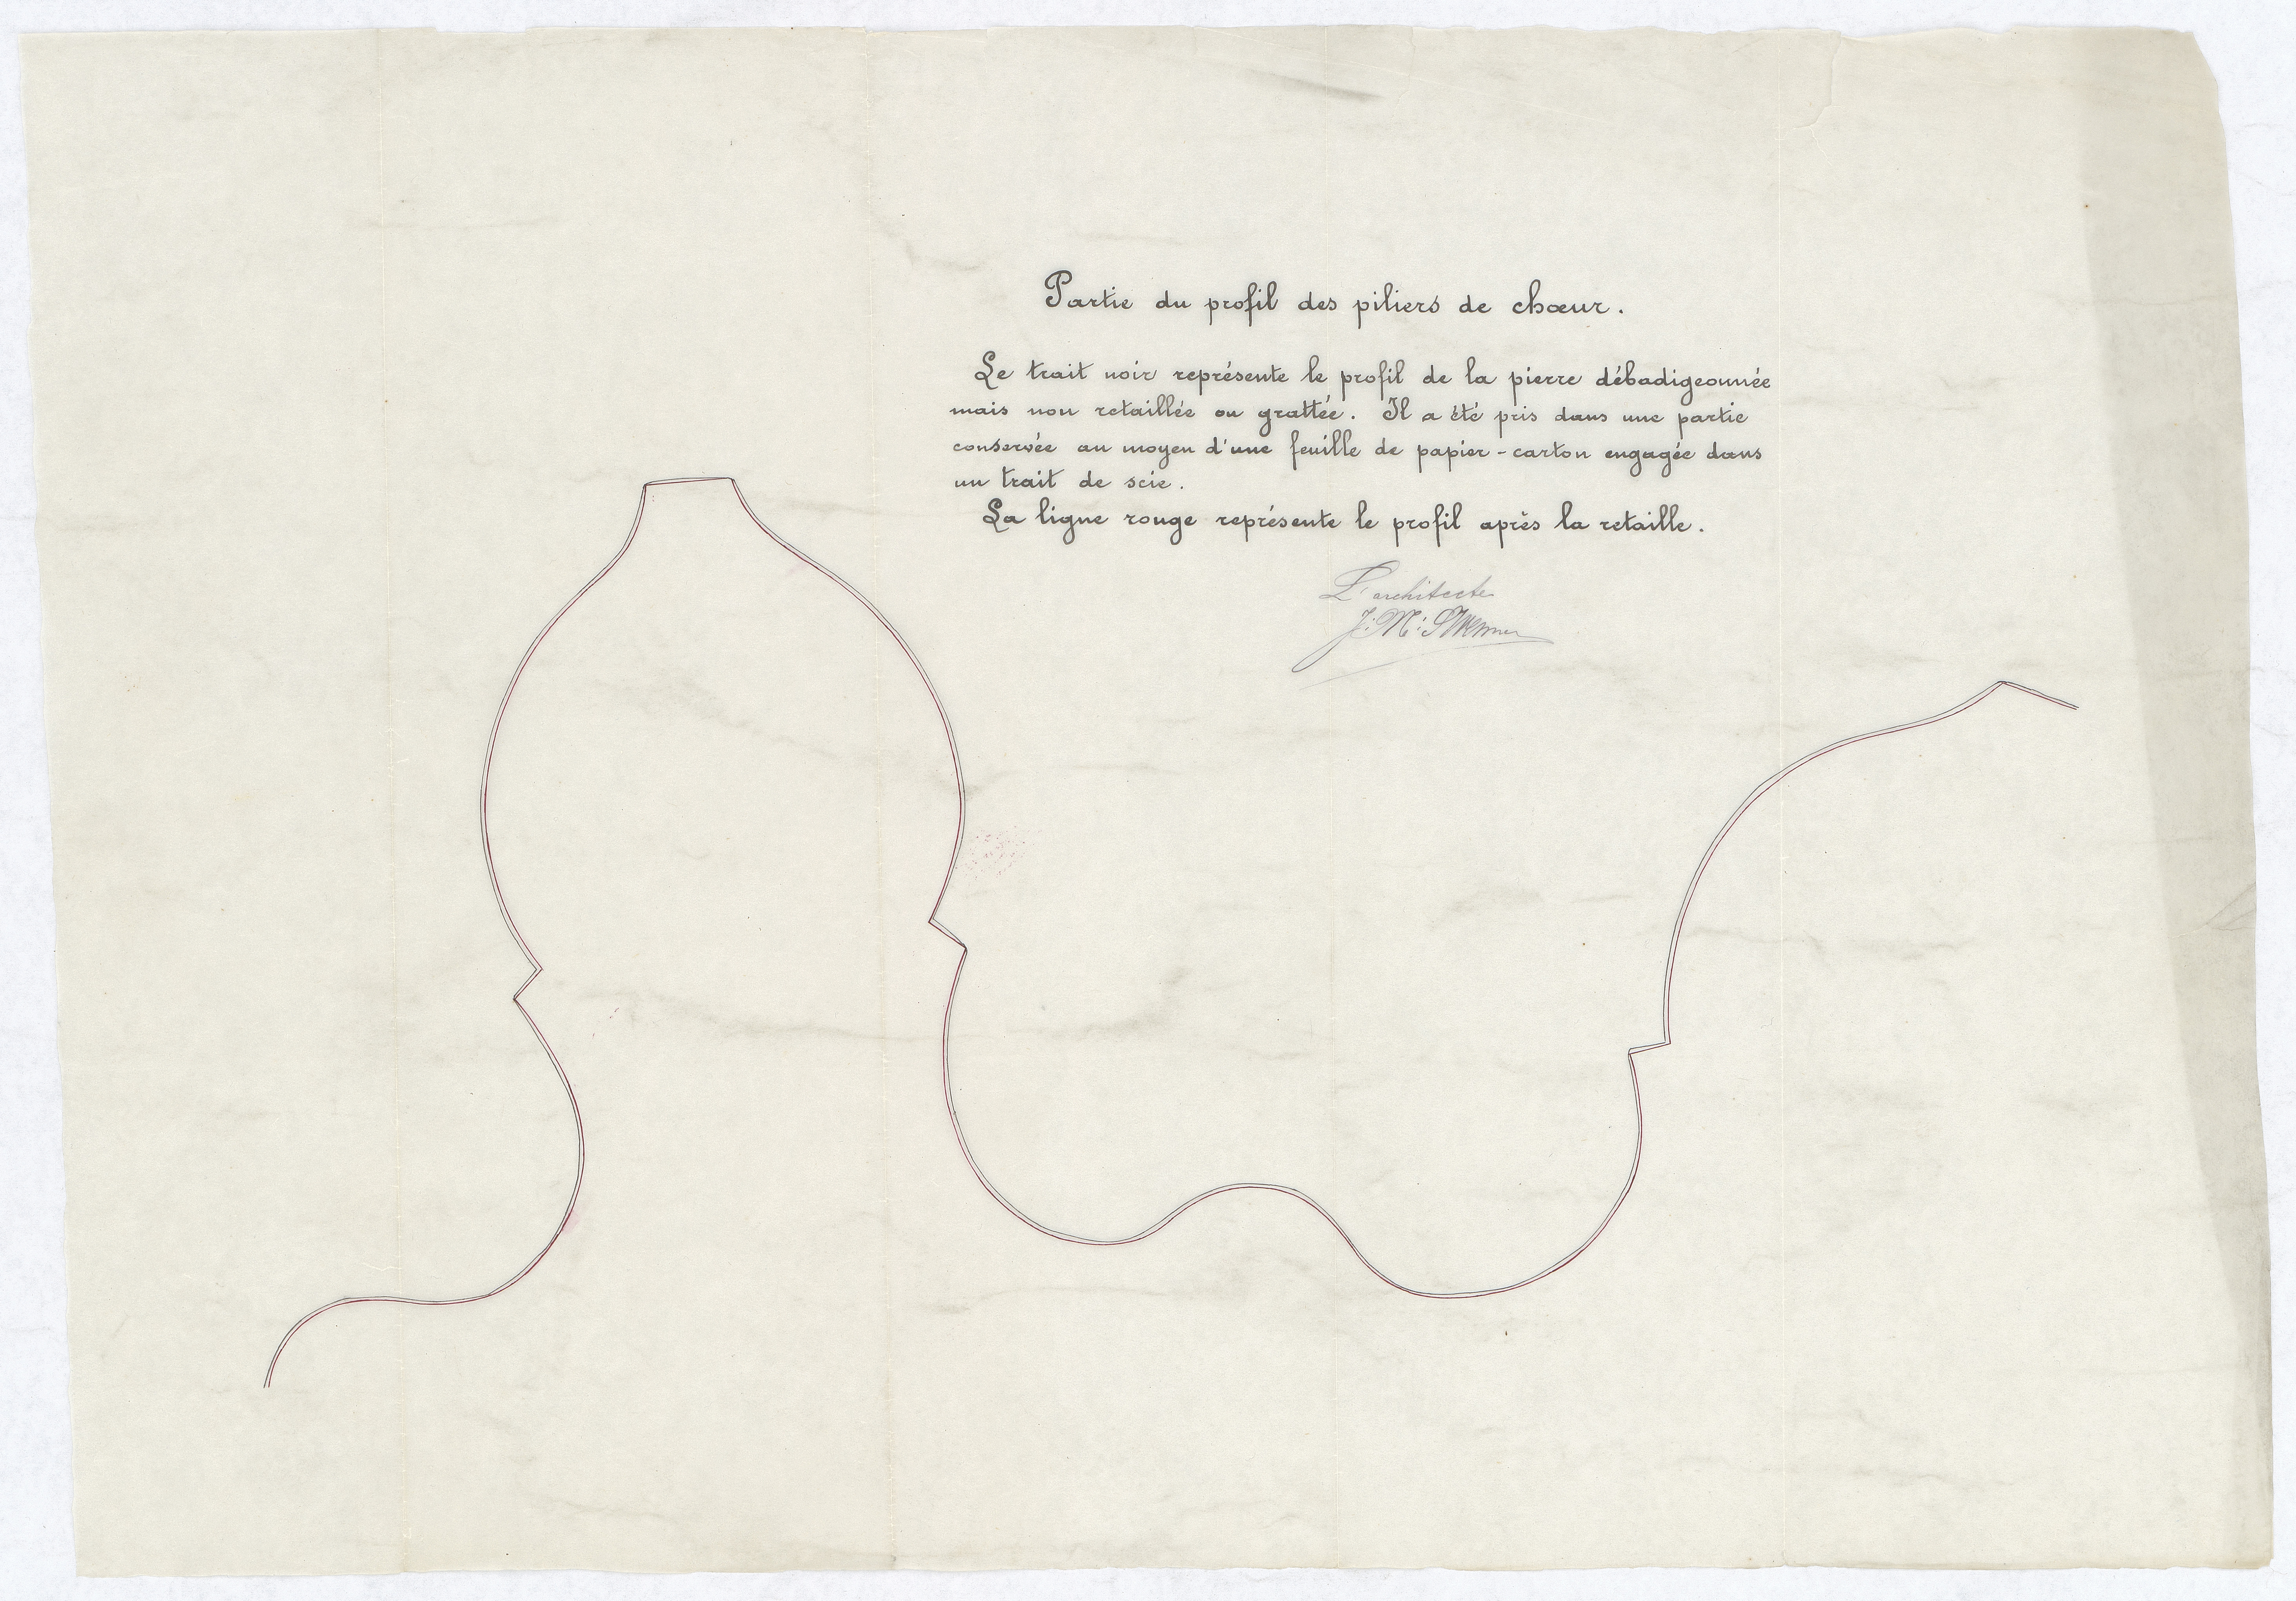 Partie du profil des piliers de chœur.
Le trait noir représente le profil de la pierre débadigeonnée
mais non retaillée ou grattée. Il a été pris dans une partie
conservée au moyen d'une feuille de papier-carton engagée dans
un trait de scie.
La ligne rouge représente le profil après la retaille.
L'architecte
J: M: